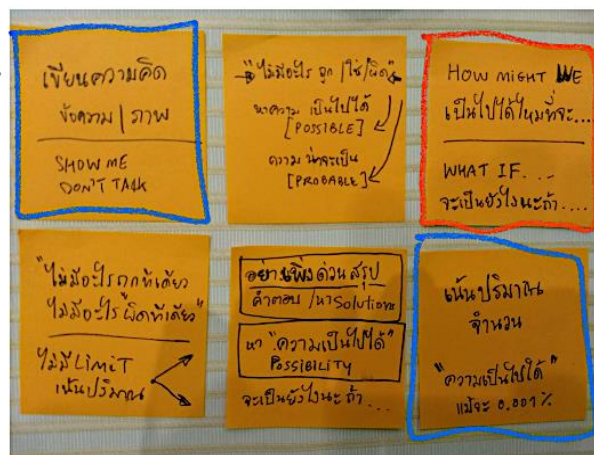 เขียนความคิด
ข้อความ | ภาพ
SHOW ME
DON'T TALK
"ไม่มีอะไร ถูก /ใช่/ผิด"
หาความ เป็นไปได้
[POSSIBLE]
ความ น่าจะเป็น
[PROBABLE]
HOW MIGHT WE
เป็นไปได้ไหมที่จะ...
WHAT IF...
จะเป็นยังไงนะถ้า....
"ไม่มีอะไรถูกทีเดียว
ไม่มีอะไรผิดทีเดียว"
ไม่มี LIMIT
เน้นปริมาณ
อย่าเพิ่งด่วนสรุป
คำตอบ /หา Solutions
หา "ความเป็นไปได้"
POSSIBILITY
จะเป็นยังไงนะ ถ้า...
เน้นปริมาณ
จำนวน
"ความเป็นไปได้"
แม้จะ 0.001%